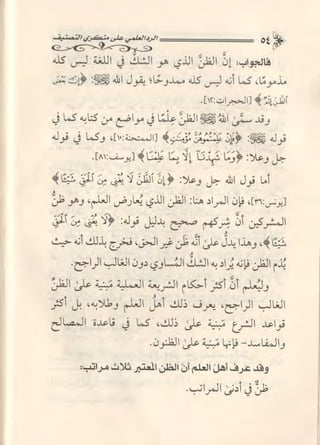 ٥٤ الرد العلمي على منكري التصنيف
فالجواب: إنَّ الظنَّ الذي هو الشك في اللغة ليس كله
مذموماً، كما أنه ليس كله ممدوحاً؛ يقول الله ﷻ: ﴿إِنَّ بَعْضَ
ٱلظَّنِّ إِثْمٌ﴾ [الحجرات: ١٢].
وقد سمَّى الله ﷻ الظنَّ علماً في مواضع من كتابه كما في
قوله ﷻ: ﴿فَإِنْ عَلِمْتُمُوهُنَّ مُؤْمِنَٰتٍ﴾ [الممتحنة: ١٠]، وكما في قوله
جل وعلا: ﴿وَمَا شَهِدْنَآ إِلَّا بِمَا عَلِمْنَا﴾ [يوسف: ٨١].
أما قول الله جل وعلا: ﴿إِنَّ ٱلظَّنَّ لَا يُغْنِى مِنَ ٱلْحَقِّ شَيْـًٔا﴾
[يونس: ٣٦]، فإن المراد هنا: الظن الذي يُعارض العلم، وهو ظن
المشركين أنَّ شركهم صحيح بدليل قوله: ﴿لَا يُغْنِى مِنَ ٱلْحَقِّ
شَيْـًٔا﴾، وهذا يدلُّ على أنَّه ظن غير الحق، فخرج بذلك أنه حيث
يُذم الظن فإنه يُراد به الشك المُساوي دون الغالب الراجح.
وليُعلم أنَّ أكثر أحكام الشريعة العملية مبنية على الظنِّ
الغالب الراجح، يعرف ذلك أهلُ العلم وطلابه، بل أكثر
قواعد الشرع مَبنية على ذلك، كما في قاعدة المصالح
والمفاسد - فإنها مبنية على الظنون.
وقد عَرف أهلُ العلم أنَّ الظن المُعتبر ثلاث مراتب:
ظنٌّ في أدنى المراتب.